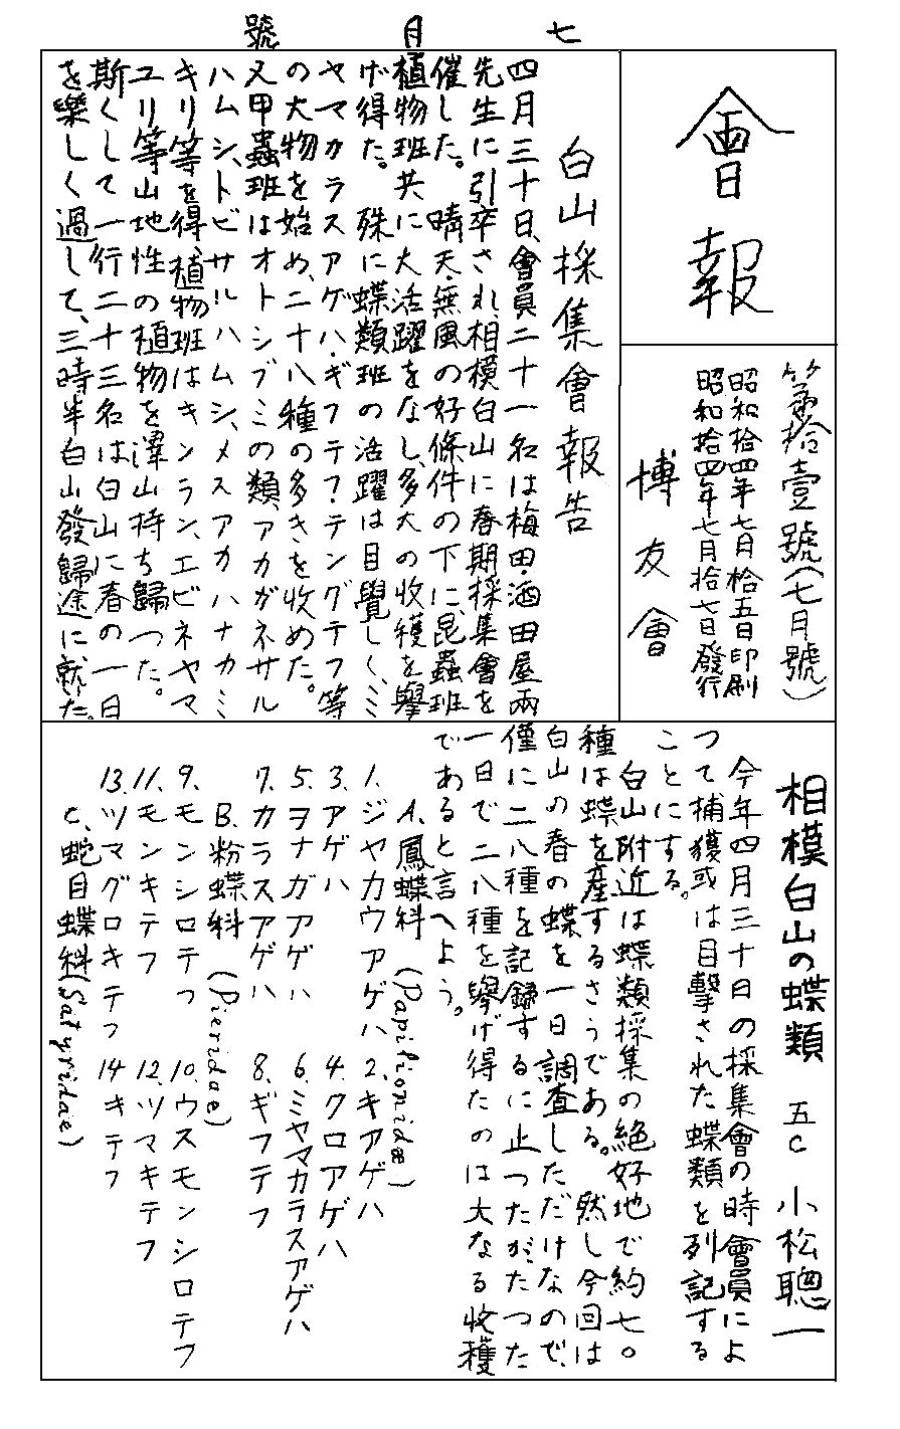 七月號
會報
第拾壹號(七月號)
昭和拾四年七月拾五日印刷
昭和拾四年七月拾七日發行
博友會
白山採集會報告
四月三十日、會員二十一名は梅田・酒田屋兩
先生に引卒され、相模白山に春期採集會を
催した。 晴天、無風の好條件の下に、昆蟲班
植物班共に大活躍をなし、多大の收穫を擧
げ得た。 殊に蝶類班の活躍は目覺しく、ミ
ヤマカラスアゲハ・ギフテフ・テングテフ等
の大物を始め、二十八種の多きを收めた。
又甲蟲班はオトシブミの類、アカガネサル
ハムシ、トビサルハムシ、メスアカハナカミ
キリ等を得、植物班はキンラン、エビネ、ヤマ
ユリ等山地性の植物を澤山持ち歸つた。
斯くして一行二十三名は白山に春の一日
を樂しく過して、三時半白山發歸途に就た。
相模白山の蝶類 五C 小松聰一
今年四月三十日の採集會の時會員によ
つて捕獲或は目擊された蝶類を列記する
ことにする。
白山附近は蝶類採集の絶好地で約七〇
種は蝶を產するさうである。 然し今回は
白山の春の蝶を一日調査しただけなので、
僅に二八種を記録するに止つたが、たつた
一日で二八種を擧げ得たのは大なる收穫
であると言へよう。
A. 鳳蝶科 (Papilionidæ)
1. ジヤカウアゲハ 2. キアゲハ
3. アゲハ 4. クロアゲハ
5. ヲナガアゲハ 6. ミヤマカラスアゲハ
7. カラスアゲハ 8. ギフテフ
B. 粉蝶科 (Pieridae)
9. モンシロテフ 10. ウスモンシロテフ
11. モンキテフ 12. ツマキテフ
13. ツマグロキテフ 14 キテフ
C. 蛇目蝶科 (Satyridae)